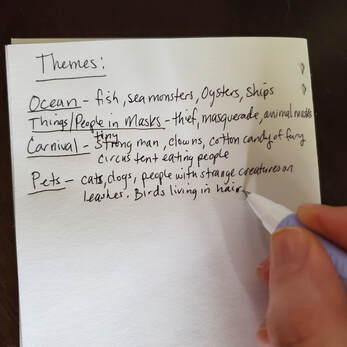 Themes:
Ocean - fish, sea monsters, Oysters, ships
Things/People in Masks - thief, masquerade, animal masks
tiny
Carnival - Strong man, clowns, cotton candy of fury
Circus tent eating people
Pets - cats, dogs, people with strange creatures on
leashes. Birds living in hair